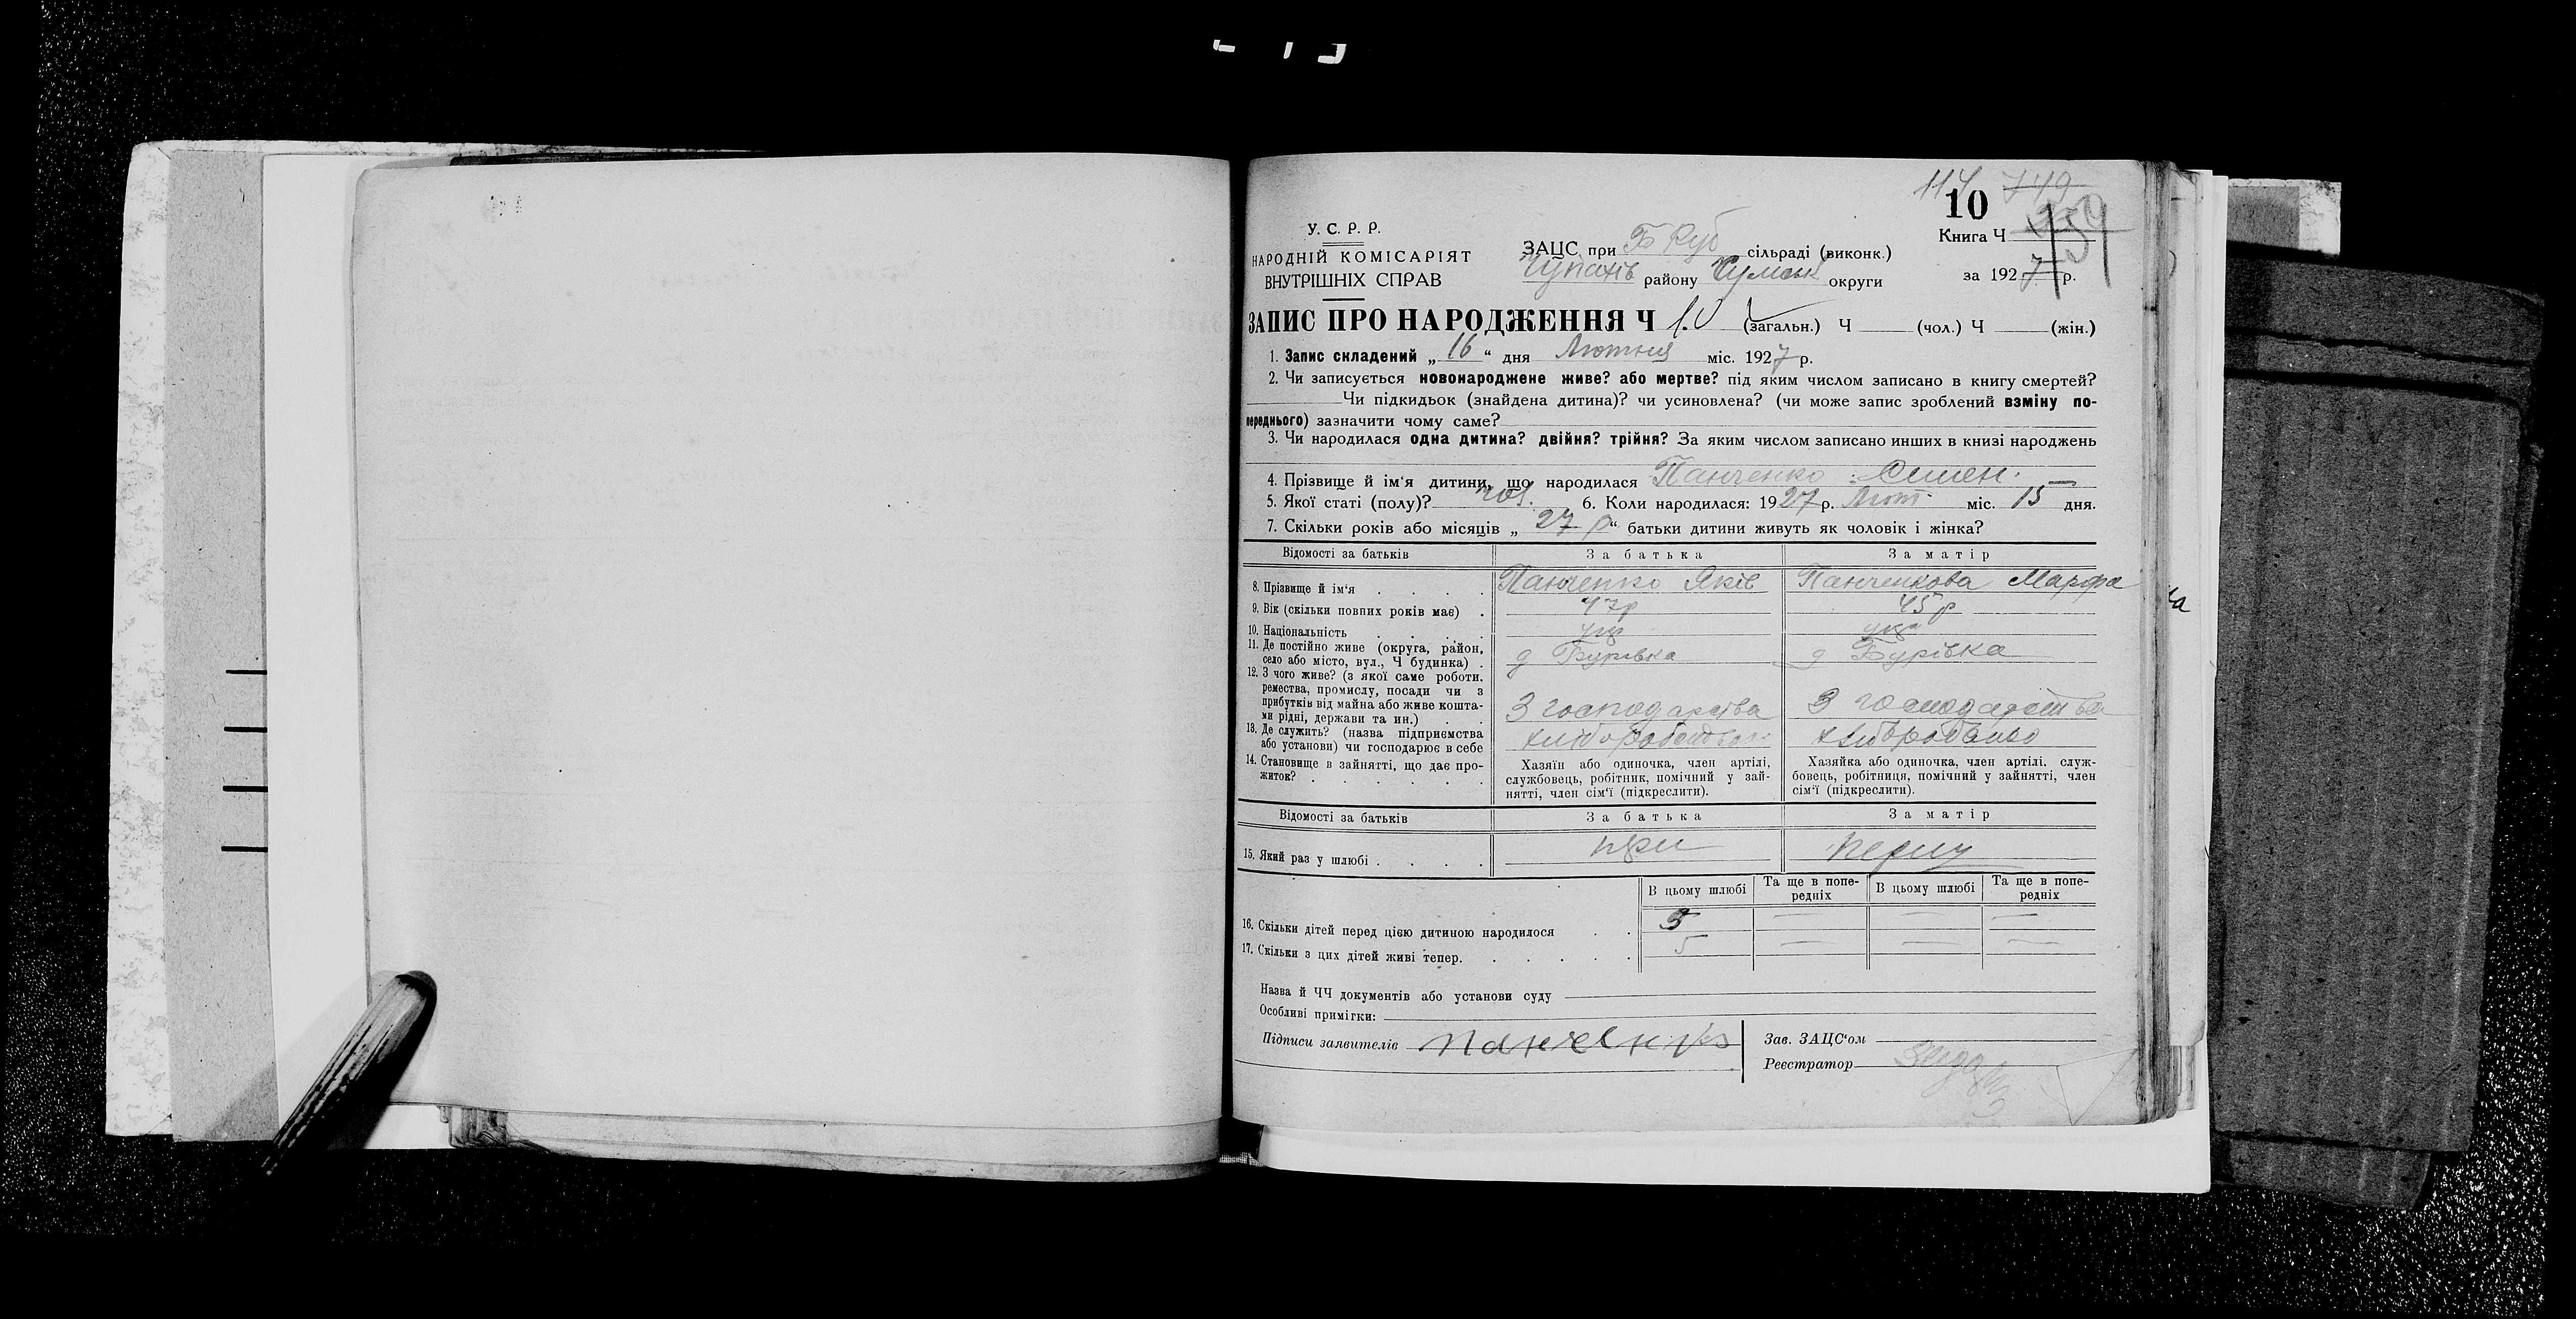 114 749
10
У. С. Р. Р.
НАРОДНІЙ КОМІСАРІЯТ
ВНУТРІШНІХ СПРАВ
ЗАЦС при Б Руб сільраді (виконк.)
району округи
Книга Ч
за 1927 р.
ЗАПИС ПРО НАРОДЖЕННЯ Ч 10 (загальн.) Ч (чол.) Ч (жін.)
1. Запис складений „ 16 “ дня Лютня міс. 1927 р.
2. Чи записується новонароджене живе? або мертве? під яким числом записано в книгу смертей?
Чи підкидьок (знайдена дитина)? чи усиновлена? (чи може запис зроблений взміну по-
переднього) зазначити чому саме?
3. Чи народилася одна дитина? двійня? трійня? За яким числом записано инших в книзі народжень
4. Прізвище й ім‘я дитини, що народилася Панченко Семен.
5. Якої статі (полу)? чол. 6. Коли народилася: 1927 р. Лют міс. 15 дня.
7. Скільки років або місяців „ 27 р “ батьки дитини живуть як чоловік і жінка?
Відомості за батьків За батька За матір
8. Прізвище й ім‘я . . . . Панченко Яків Панченкова Марфа
9. Вік (скільки повних років має) . 47р 45р
10. Національність . . . . укр укр
11. Де постійно живе (округа, район,
село або місто, вул., Ч будинка) . д Бурівка д Бурівка
12. З чого живе? (з якої саме роботи,
ремества, промислу, посади чи з
прибутків від майна або живе кошта-
ми рідні, держави та ин.) . . З господарства З господарства
13. Де служить? (назва підприємства
або установи) чи господарює в себе
14. Становище в зайнятті, що дає про-
житок? . . . . . .
Хазяїн або одиночка, член артілі,
службовець, робітник, помічний у зай-
нятті, член сім‘ї (підкреслити).
Хазяйка або одиночка, член артілі, служ-
бовець, робітниця, помічний у зайнятті, член
сім‘ї (підкреслити).
Відомості за батьків За батька За матір
15. Який раз у шлюбі . . . . перу
В цьому шлюбі Та ще в попе-
редніх В цьому шлюбі Та ще в попе-
редніх
16. Скільки дітей перед цією дитиною народилося . . 5 — — —
17. Скільки з цих дітей живі тепер. . . . . . 5 — — —
Назва й ЧЧ документів або установи суду
Особливі примітки:
Підписи заявителів Панченко
Зав. ЗАЦС‘ом
Реєстратор